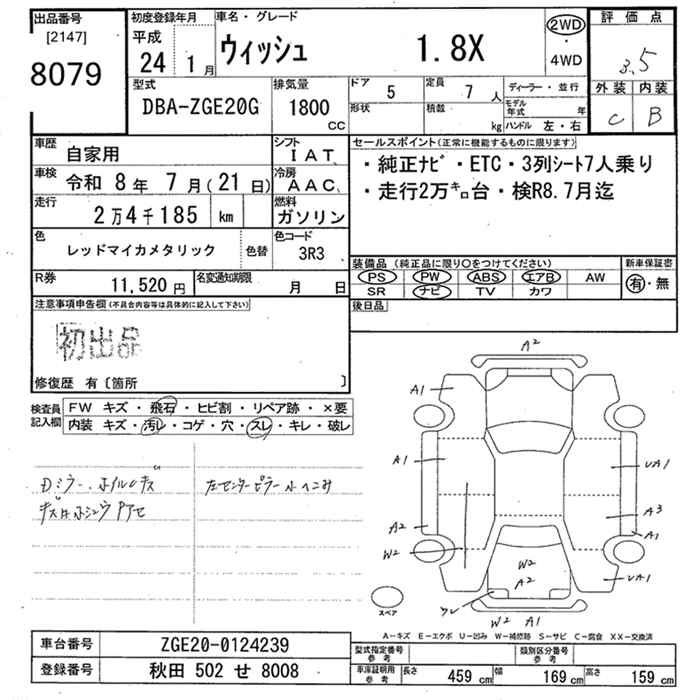 出品番号
[2147]
8079
初度登録年月
平成
24 1月
車名・グレード
ウィッシュ 1.8X
2WD
・
4WD
評価点
3.5
外装 内装
C B
型式
DBA-ZGE20G
排気量
1800
CC
ドア 5
定員 7人
形状
積載 kg
ディーラー・並行
モデル年式 年
ハンドル 左・右
車歴 自家用
シフト IAT
車検 令和 8年 7月(21日)
冷房 AAC
走行 2万4千185 km
燃料 ガソリン
色 レッドマイカメタリック 色替
色コード 3R3
R券 11,520円
名変通知期限 月 日
セールスポイント(正常に機能するものに限ります)
・純正ナビ・ETC・3列シート7人乗り
・走行2万㌔台・検R8.7月迄
装備品(純正品に限り○をつけてください)
新車保証書
PS PW ABS エアB AW
有・無
SR ナビ TV カワ
後日品
注意事項申告欄(不具合内容等は具体的に記入して下さい)
初出品
修復歴 有〔箇所 〕
検査員記入欄
FW キズ・飛石・ヒビ割・リペア跡・×要
内装 キズ・汚レ・コゲ・穴・スレ・キレ・破レ
Dミラー、ホイルキズ
左センターピラー小ヘこみ
A2
A1
A1
UA1
A2
A3
A1
W2
W2
A2
UA1
W2 A1
スペア
A-キズ E-エクボ U-凹み W-補修跡 S-サビ C-腐食 XX-交換済
車台番号 ZGE20-0124239
登録番号 秋田 502 せ 8008
型式指定番号 参考
類別区分番号 参考
車庫証明用 参考
長さ 459 cm
幅 169 cm
高さ 159 cm